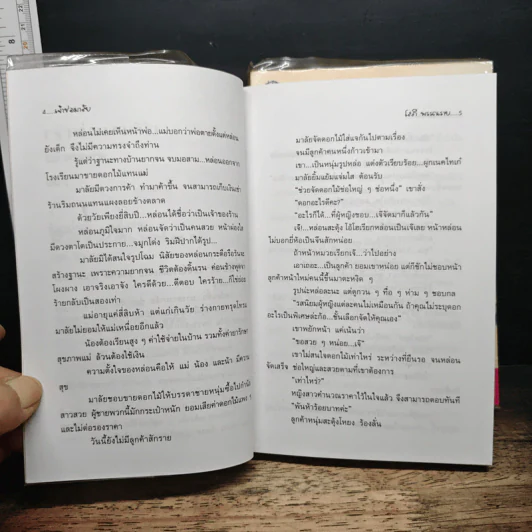 4....เจ้าช่อมาลัย
หล่อนไม่เคยเห็นหน้าพ่อ...แม่บอกว่าพ่อตายตั้งแต่หล่อน
ยังเด็ก จึงไม่มีความทรงจำถึงท่าน
รู้แต่ว่าฐานะทางบ้านยากจน จบมอสาม...หล่อนออกจาก
โรงเรียนมาขายดอกไม้แทนแม่
มาลัยมีดวงการค้า ทำมาค้าขึ้น จนสามารถเก็บเงินเช่า
ร้านริมถนนแทนแผงลอยข้างตลาด
ด้วยวัยเพียงยี่สิบปี...หล่อนได้ชื่อว่าเป็นเจ้าของร้าน
หล่อนภูมิใจมาก หล่อนจัดว่าเป็นคนสวย หน้าผ่องใส
มีดวงตาโตเป็นประกาย...จมูกโด่ง ริมฝีปากได้รูป...
มาลัยมิได้สนใจรูปโฉม นิสัยของหล่อนกระตือรือร้น
สร้างฐานะ เพราะความยากจน ชีวิตต้องดิ้นรน ค่อนข้างพูดจา
โผงผาง เอาจริงเอาจัง ใครดีด้วย...ดีตอบ ใครร้าย...ก็ใช่
ร้ายกลับเป็นสองเท่า
แม่อายุแค่สี่สิบห้า แต่แก่เกินวัย ร่างกายทรุดโทรม
มาลัยไม่ยอมให้แม่เหนื่อยอีกแล้ว
น้องต้องเรียนสูง ๆ ค่าใช้จ่ายในบ้าน รวมทั้งค่ายารักษา
สุขภาพแม่ ล้วนต้องใช้เงิน
ความตั้งใจของหล่อนคือให้ แม่ น้อง และน้า มีความ
สุข
มาลัยชอบขายดอกไม้ให้บรรดาชายหนุ่มซื้อไปกำนัล
สาวสวย ผู้ชายพวกนี้มักกระเป๋าหนัก ยอมเสียค่าดอกไม้แพง
และไม่ต่อรองราคา
วันนี้ยังไม่มีลูกค้าสักราย
โสภี พรรณราย....5
มาลัยจัดดอกไม้ใส่แจกันไปตามเรื่อง
จนมีลูกค้าคนหนึ่งก้าวเข้ามา
เขา...เป็นหนุ่มรูปหล่อ แต่งตัวเรียบร้อย...ผูกเนคไทเก๋
มาลัยยิ้มแย้มแจ่มใส ต้อนรับ
"ช่วยจัดดอกไม้ช่อใหญ่ ๆ ช่อหนึ่ง" เขาสั่ง
"ดอกอะไรดีคะ?"
"อะไรก็ได้...ที่ผู้หญิงชอบ...เจ๊จัดมาก็แล้วกัน"
เจ๊!...หล่อนสะดุ้ง โอ้โฮเรียกหล่อนเป็นเจ๊เลย หน้าหล่อน
ไม่บอกยี่ห้อเป็นจีนสักหน่อย
ถ้าหน้าหมวยเรียกเจ๊...ว่าไปอย่าง
เอาเถอะ...เป็นลูกค้า ยอมเขาหน่อย แต่ก็ชักไม่ชอบหน้า
ลูกค้าหน้าใหม่คนนี้ขึ้นมาตะหงิด ๆ
รูปน่ะหล่อละนะ แต่ดูกวน ๆ ที่อ ๆ ห่าม ๆ ชอบกล
"รสนิยมผู้หญิงแต่ละคนไม่เหมือนกัน ถ้าคุณไม่ระบุดอก
อะไรเป็นพิเศษล่ะก้อ...ชั้นเลือกจัดให้คุณเอง"
เขาพยักหน้า แค่เน้นว่า
"ขอสวย ๆ หน่อย...เจ๊"
เขาไม่สนใจดอกไม้เท่าไหร่ ระหว่างที่ยืนรอ จนหล่อน
จัดเสร็จ ช่อใหญ่และสวยตามที่เขาต้องการ
"เท่าไหร่?"
หญิงสาวคำนวณราคาไว้ในใจแล้ว จึงสามารถตอบทันที
"พันห้าร้อยบาทค่ะ"
ลูกค้าหนุ่มสะดุ้งโหยง ร้องลั่น